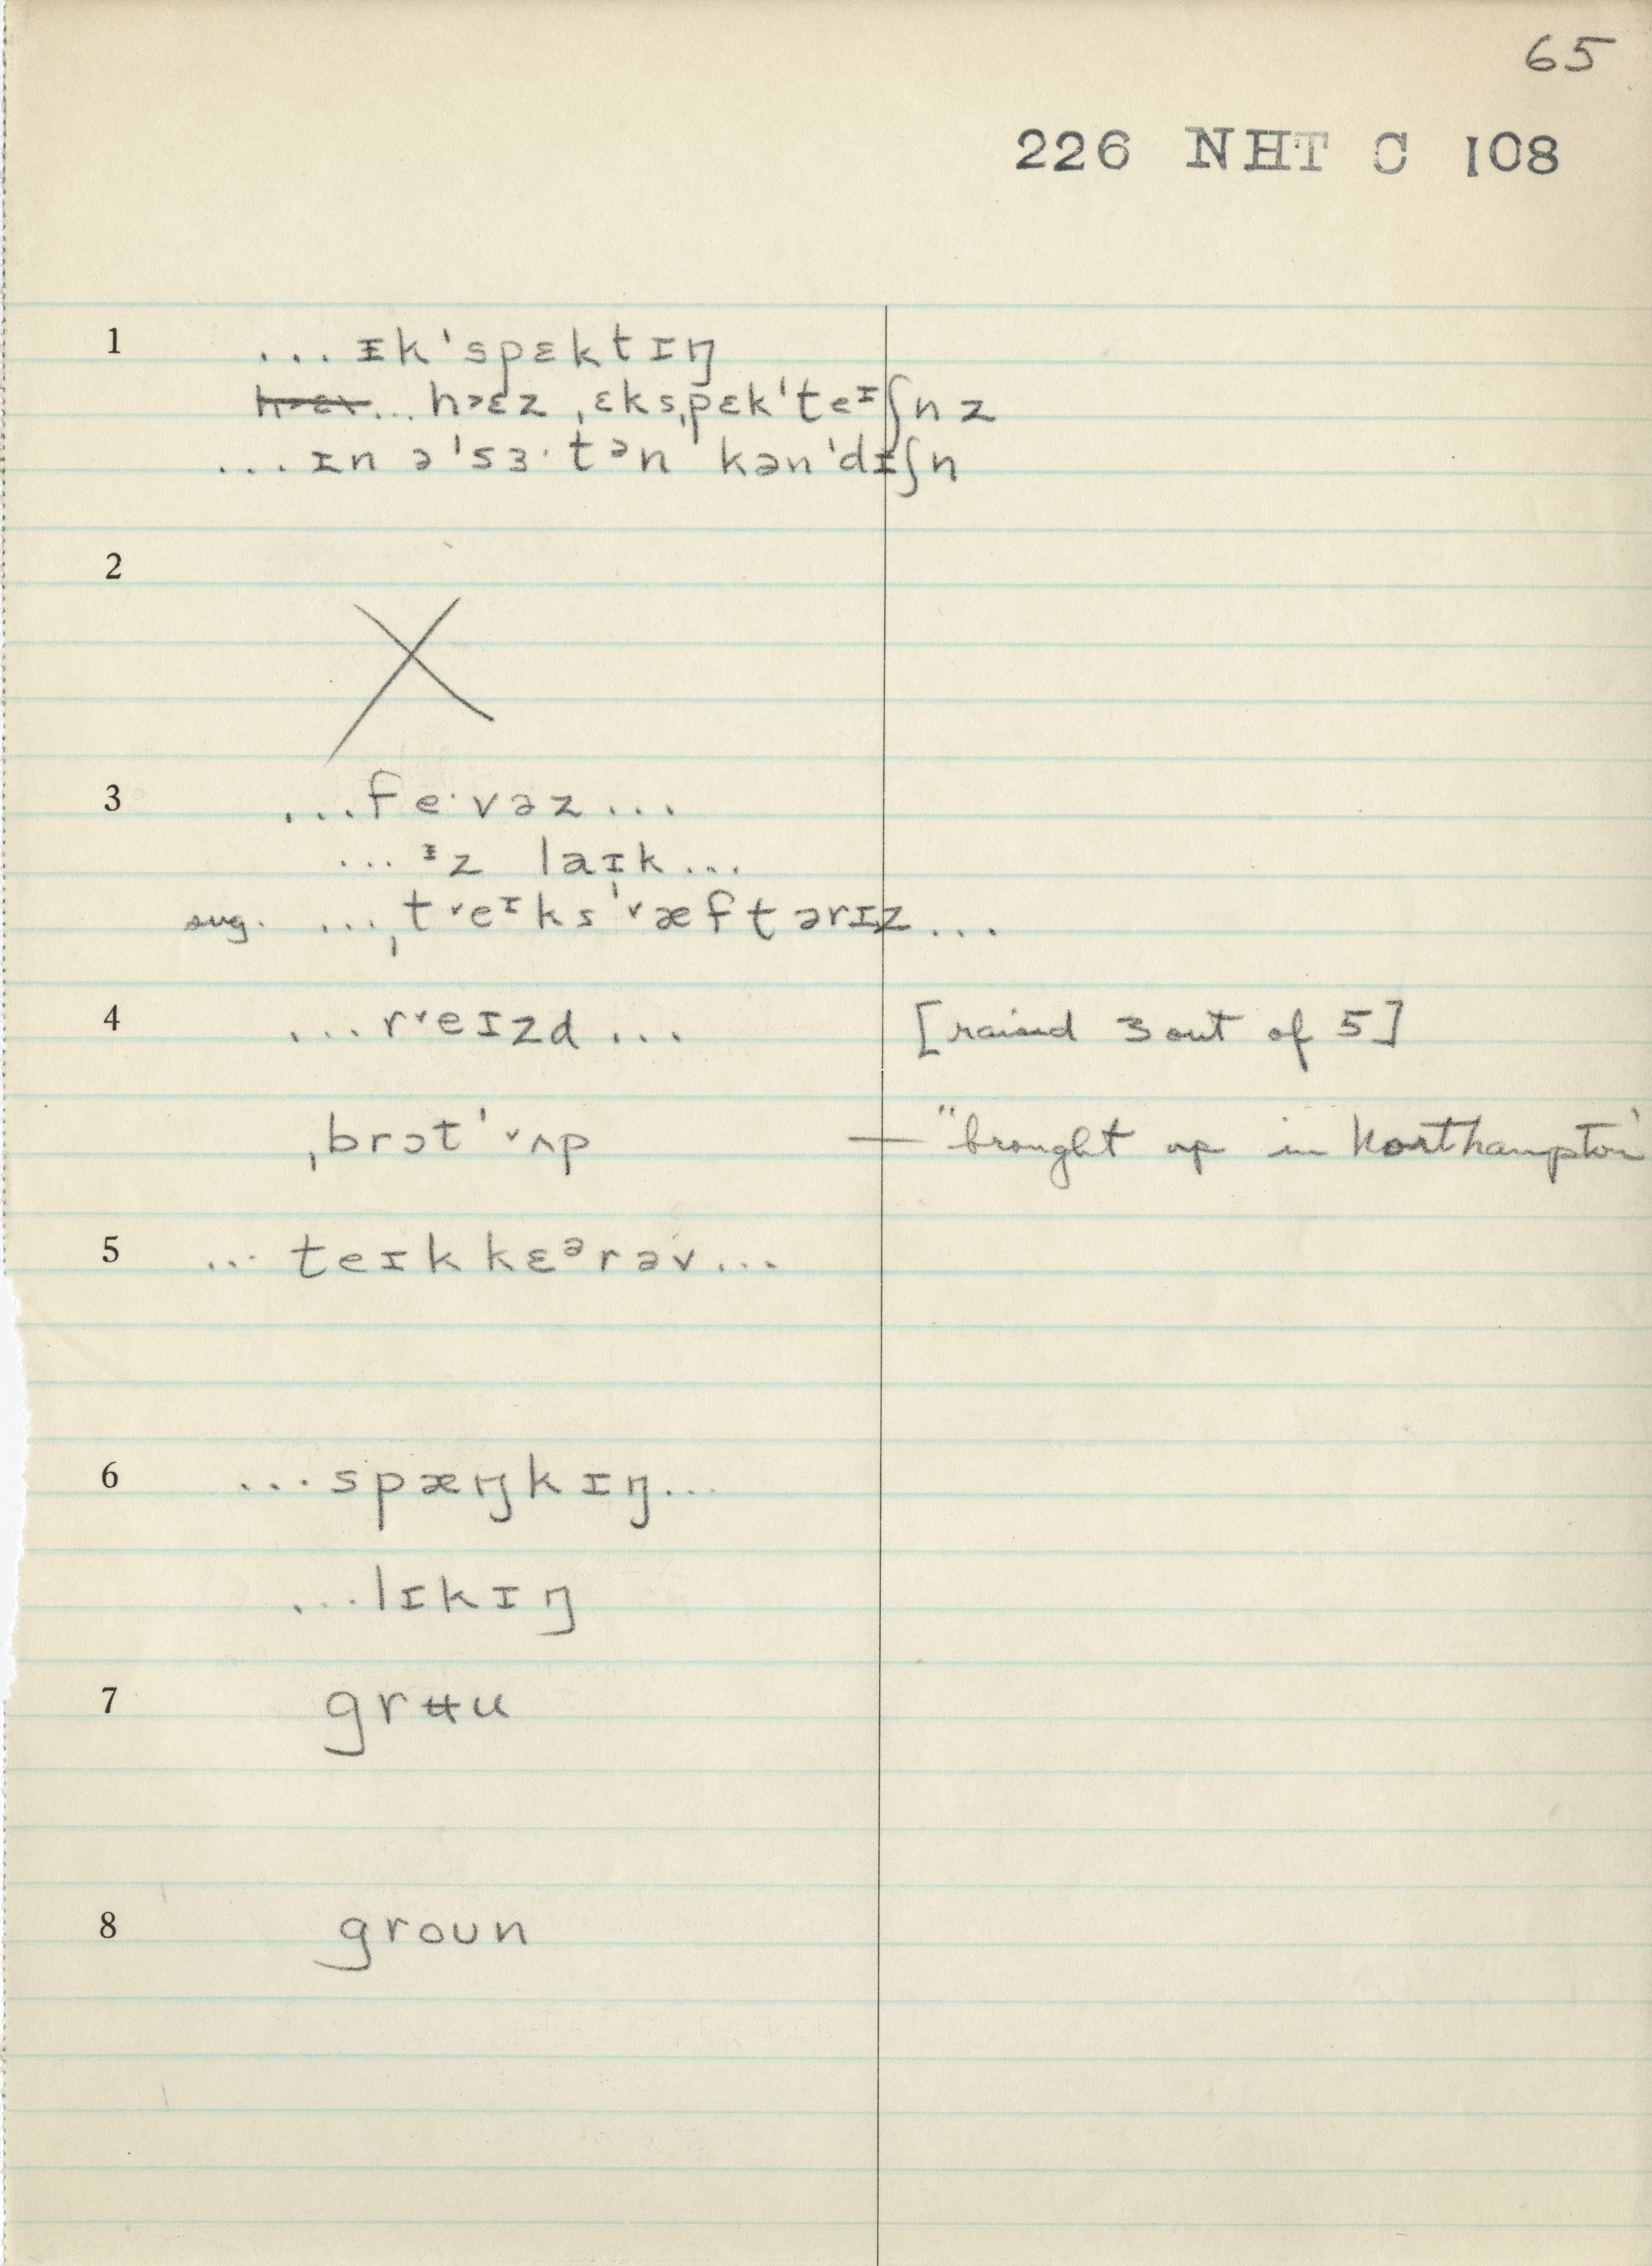 65
226 NHT C 108
1 ... ᵻk'spɛktɪŋ
... h˃ɛz ˌɛksˌpɛk'teᶦʃnz
... ɪn ə'sɜ·tᵊn kən'dᵻʃn
2
3 ... fe·vəz ...
... ᵻz laɪk ...
sug. ... ˌt˅eᶦks'˅æftərɪz ...
4 ... r˅eɪzd ... [raised 3 out of 5]
ˌbrɔt'˅ʌp — "brought up in Northampton"
5 ... teɪkkɛᵊrəv ...
6 ... spæŋkɪŋ ...
... lɪkɪŋ
7 grʉu
8 groun